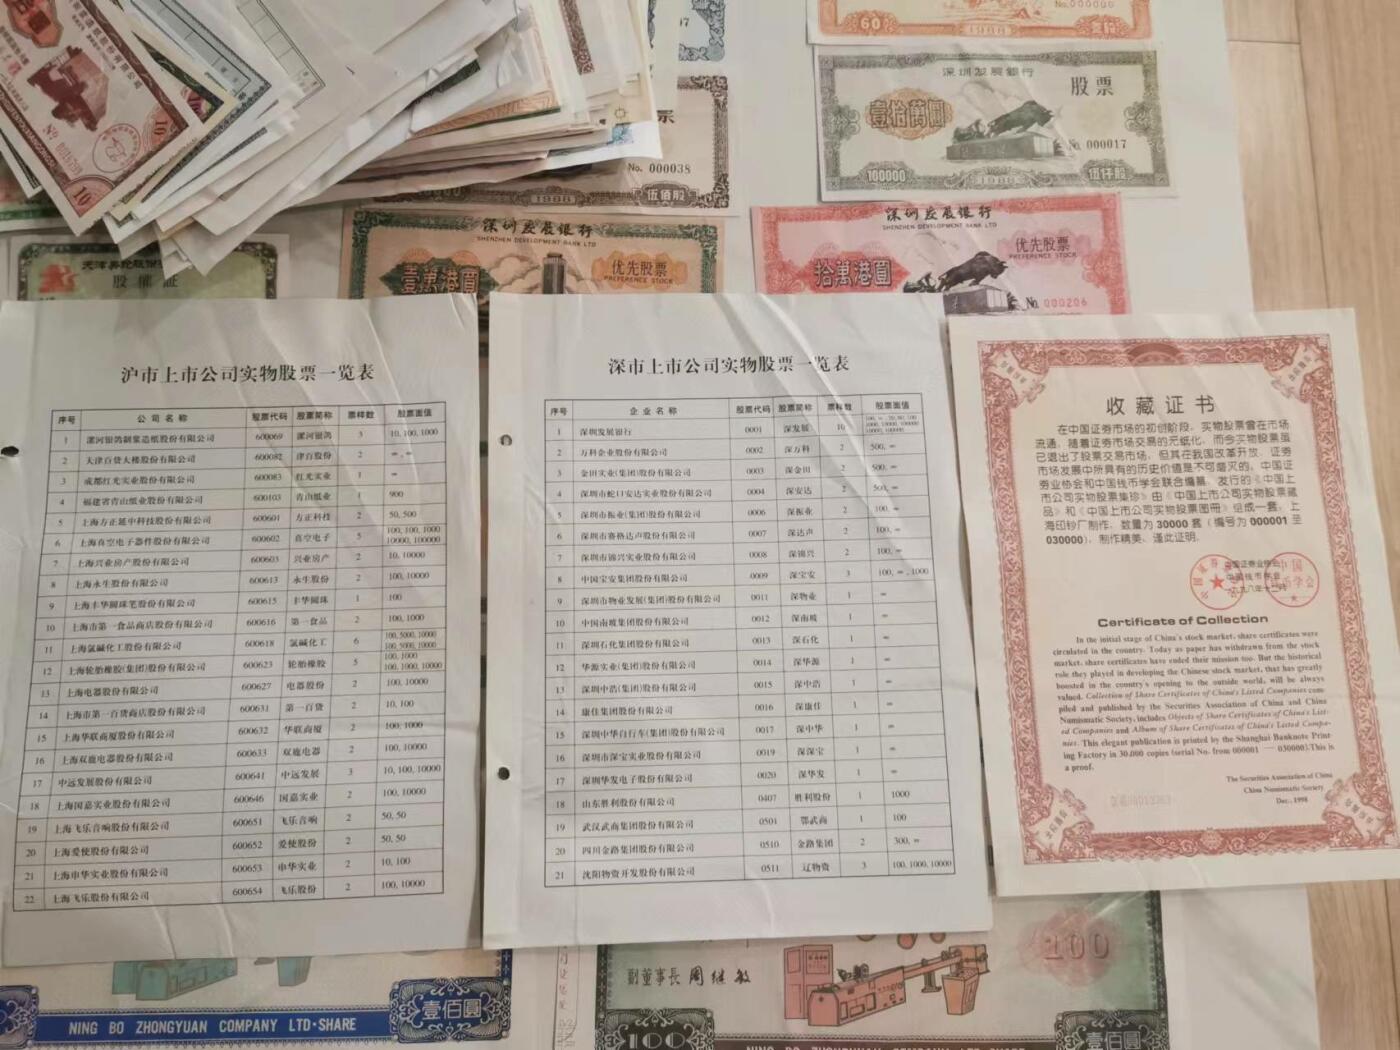 深圳发展银行
股票
壹拾萬圓
No. 000017
100000
1988
伍仟股
60
1988
No. 000038
伍佰股
1988
深圳发展银行
SHENZHEN DEVELOPMENT BANK LTD
壹萬港圓
优先股票
PREFERENCE STOCK
深圳发展银行
SHENZHEN DEVELOPMENT BANK LTD
拾萬港圓
优先股票
PREFERENCE STOCK
No. 000206
股权证
10
10
沪市上市公司实物股票一览表
序号 公司名称 股票代码 股票简称 票样数 股票面值
1 漯河银鸽制浆造纸股份有限公司 600069 漯河银鸽 3 10, 100, 1000
2 天津百货大楼股份有限公司 600082 津百股份 2 =, =
3 成都红光实业股份有限公司 600083 红光实业 1 =
4 福建省青山纸业股份有限公司 600103 青山纸业 1 900
5 上海方正延中科技股份有限公司 600601 方正科技 2 50, 500
6 上海真空电子器件股份有限公司 600602 真空电子 5 100, 100, 1000
10000, 100000
7 上海兴业房产股份有限公司 600603 兴业房产 2 10, 10000
8 上海永生股份有限公司 600613 永生股份 2 100, 10000
9 上海丰华圆珠笔股份有限公司 600615 丰华圆珠 1 100
10 上海市第一食品商店股份有限公司 600616 第一食品 2 100, 1000
11 上海氯碱化工股份有限公司 600618 氯碱化工 6 100, 5000, 10000
100, 5000, 10000
12 上海轮胎橡胶(集团)股份有限公司 600623 轮胎橡胶 5 100, 1000
100, 1000, 10000
13 上海电器股份有限公司 600627 电器股份 2 100, 10000
14 上海市第一百货商店股份有限公司 600631 第一百货 2 10, 100
15 上海华联商厦股份有限公司 600632 华联商厦 2 100, 1000
16 上海双鹿电器股份有限公司 600633 双鹿电器 2 100, 10000
17 中远发展股份有限公司 600641 中远发展 3 10, 100, 10000
18 上海国嘉实业股份有限公司 600646 国嘉实业 2 100, 10000
19 上海飞乐音响股份有限公司 600651 飞乐音响 2 50, 50
20 上海爱使股份有限公司 600652 爱使股份 2 50, 50
21 上海申华实业股份有限公司 600653 申华实业 2 10, 100
22 上海飞乐股份有限公司 600654 飞乐股份 2 100, 10000
深市上市公司实物股票一览表
序号 企业名称 股票代码 股票简称 票样数 股票面值
1 深圳发展银行 0001 深发展 10
2 万科企业股份有限公司 0002 深万科 2 500, =
3 金田实业(集团)股份有限公司 0003 深金田 2 500, =
4 深圳市蛇口安达实业股份有限公司 0004 深安达 2 500, =
5 深圳市振业(集团)股份有限公司 0006 深振业 2 100, =
6 深圳市赛格达声股份有限公司 0007 深达声 2 100, =
7 深圳市锦兴实业股份有限公司 0008 深锦兴 2 100, =
8 中国宝安集团股份有限公司 0009 深宝安 3 100, =, 1000
9 深圳市物业发展(集团)股份有限公司 0011 深物业 1 =
10 中国南玻集团股份有限公司 0012 深南玻 1 =
11 深圳石化集团股份有限公司 0013 深石化 1 =
12 华源实业(集团)股份有限公司 0014 深华源 1 =
13 深圳中浩(集团)股份有限公司 0015 深中浩 1 =
14 康佳集团股份有限公司 0016 深康佳 1 =
15 深圳中华自行车(集团)股份有限公司 0017 深中华 1 =
16 深圳市深宝实业股份有限公司 0019 深深宝 1 =
17 深圳华发电子股份有限公司 0020 深华发 1 =
18 山东胜利股份有限公司 0407 胜利股份 1 1000
19 武汉武商集团股份有限公司 0501 鄂武商 1 100
20 四川金路集团股份有限公司 0510 金路集团 2 300, =
21 沈阳物资开发股份有限公司 0511 辽物资 3 100, 1000, 10000
收藏证书
在中国证券市场的初创阶段，实物股票曾在市场
流通，随着证券市场交易的无纸化，而今实物股票虽
已退出了股票交易市场，但其在我国改革开放、证券
市场发展中所具有的历史价值是不可磨灭的。中国证
券业协会和中国钱币学会联合编纂、发行的《中国上
市公司实物股票集珍》由《中国上市公司实物股票藏
品》和《中国上市公司实物股票图册》组成一套，上
海印钞厂制作，数量为 30000 套（编号为 000001 至
030000），制作精美，谨此证明。
中国证券业协会
中国钱币学会
一九九八年十二月
Certificate of Collection
In the initial stage of China's stock market, share certificates were
circulated in the country. Today as paper has withdrawn from the stock
market, share certificates have ended their mission too. But the historical
role they played in developing the Chinese stock market, that has greatly
boosted in the country's opening to the outside world, will be always
valued. Collection of Share Certificates of China's Listed Companies com-
piled and published by the Securities Association of China and China
Numismatic Society, includes Objects of Share Certificates of China's List-
ed Companies and Album of Share Certificates of China's Listed Compa-
nies. This elegant publication is printed by the Shanghai Banknote Print-
ing Factory in 30,000 copies (serial No. from 000001 — 030000).This is
a proof.
The Securities Association of China
China Numismatic Society
Dec., 1998
NING BO ZHONGYUAN COMPANY LTD·SHARE
壹佰圓
副董事長 周继敏
100
100
壹佰圓